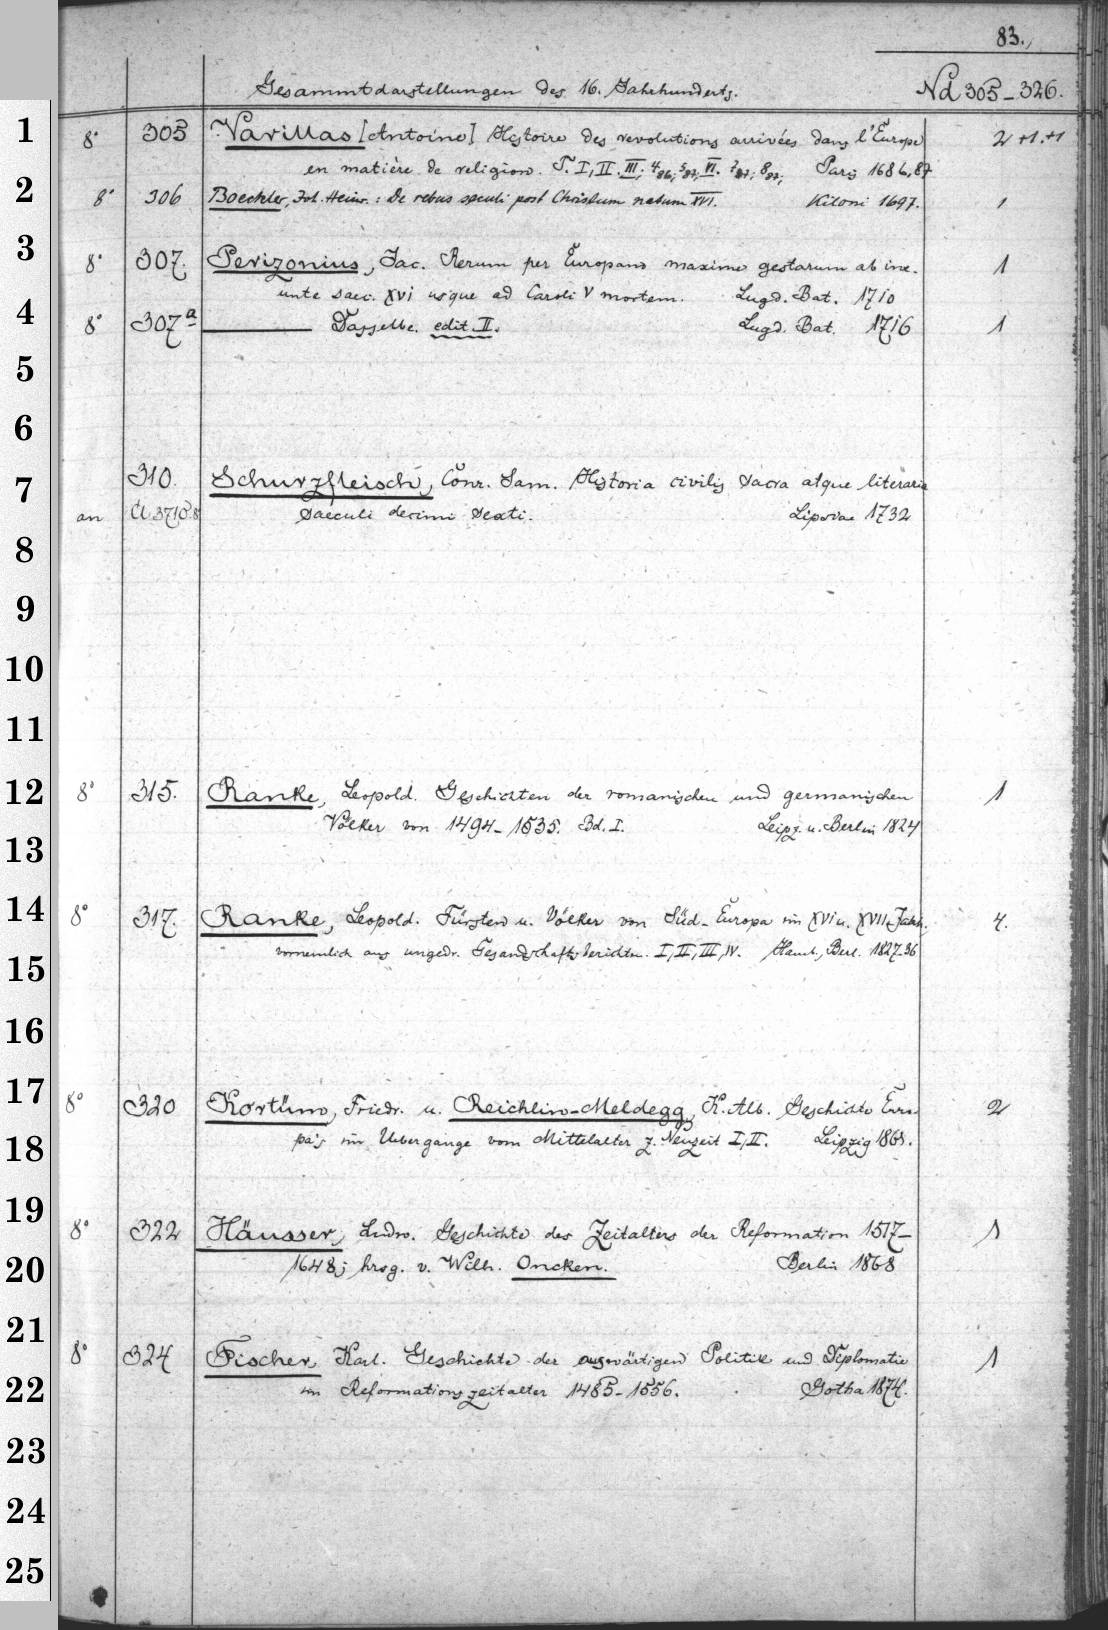 83.
Gesammtdarstellungen des 16. Jahrhunderts. Nd 305-326.
1 8° 305 Varillas [Antoine] Histoire des revolutions arrivées dans l'Europe 2+1.+1
en matière de religion. T. I, II. III; 4/86; 5/87; VI. 7/87; 8/87; Paris 1686,87
2 8° 306 Boeckler, Joh. Heinr.: De rebus saeculi post Christum natum XVI. Kiloni 1697. 1
3 8° 307. Perizonius, Jac. Rerum per Europam maxime gestarum ab ine-
unte saec. XVI usque ad Caroli V mortem. Lugd. Bat. 1710 1
4 8° 307a ——— Dasselbe. edit. II. Lugd. Bat. 1716 1
5
6
7 310. Schurzfleisch, Conr. Sam. Historia civilis sacra atque literaria
an saeculi decimi sexti. Lipsiae 1732
8
9
10
11
12 8° 315. Ranke, Leopold. Geschichten der romanischen und germanischen 1
Völker von 1494-1535. Bd. I. Leipz. u. Berlin 1824
13
14 8° 317. Ranke, Leopold. Fürsten u. Völker von Süd-Europa im XVI u. XVII. Jahrh. 4.
vornemlich aus ungedr. Gesandschaftsberichten. I, II, III, IV. Hamb., Berl. 1827-36
15
16
17 8° 320 Kortüm, Friedr. u. Reichlin-Meldegg, K. Alb. Geschichte Euro- 2
pa's im Uebergange vom Mittelalter z. Neuzeit I, II. Leipzig 1861.
18
19 8° 322 Häusser, Ludw. Geschichte des Zeitalters der Reformation 1517- 1
20 1648; hrsg. v. Wilh. Oncken. Berlin 1868
21 8° 324 Fischer, Karl. Geschichte der auswärtigen Politik und Diplomatie 1
22 im Reformationszeitalter 1485-1556. Gotha 1874.
23
24
25